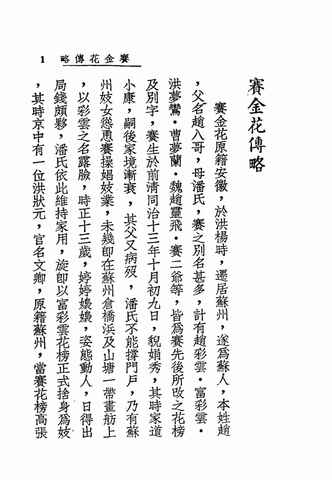 略傳花金賽 1
賽金花傳略
賽金花原籍安徽，於洪楊時，遷居蘇州，遂爲蘇人，本姓趙
，父名趙八哥，母潘氏，賽之別名甚多，計有趙彩雲・富彩雲・
洪夢鸞・曹夢蘭・魏趙靈飛・賽二爺等，皆爲賽先後所改之花榜
及別字，賽生於前淸同治十三年十月初九日，貌娟秀，其時家道
小康，嗣後家境漸衰，其父又病歿，潘氏不能撐門戶，乃有蘇
州妓女慫恿賽操娼妓業，未幾卽在蘇州倉橋浜及山塘一帶畫舫上
，以彩雲之名露臉，時正十三歲，婷婷嬝嬝，姿態動人，日得出
局錢頗夥，潘氏依此維持家用，旋卽以富彩雲花榜正式捨身爲妓
，其時京中有一位洪狀元，官名文卿，原籍蘇州，當賽花榜高張